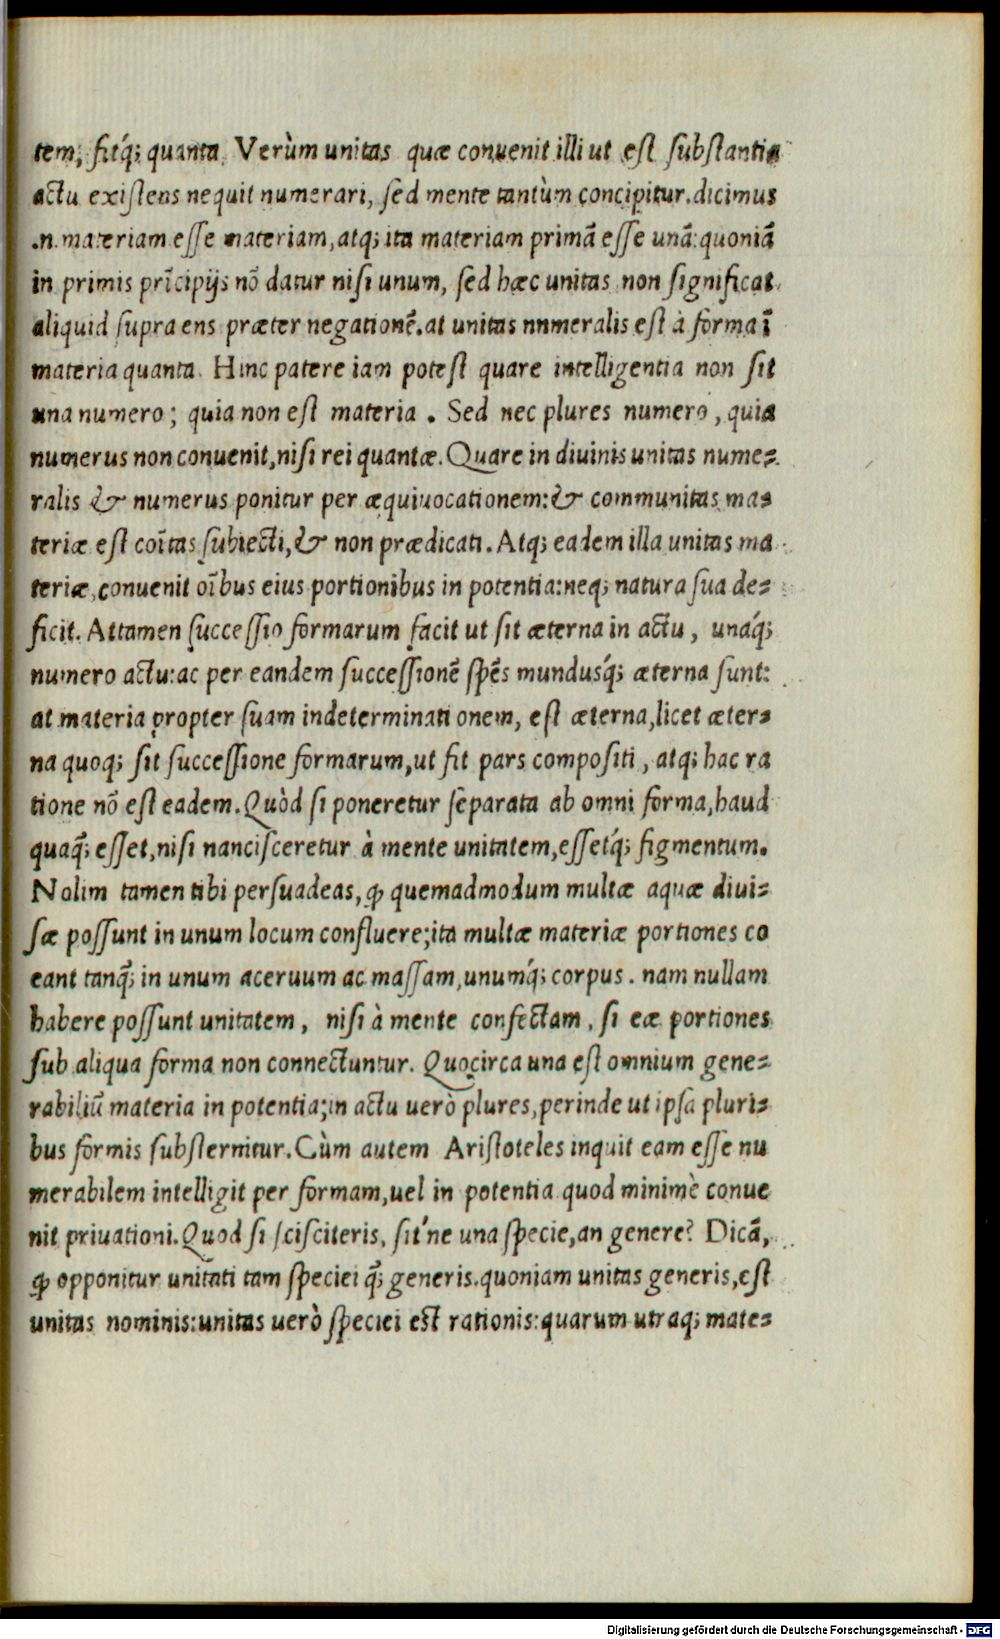 tem, fitq́; quanta. Verùm unitas quæ conuenit illi ut est substantia
actu existens nequit numerari, sed mente tantùm concipitur. dicimus
.n. materiam esse materiam, atq; ita materiam primā esse unā: quoniā
in primis prīcipijs nō datur nisi unum, sed hæc unitas non significat
aliquid supra ens præter negationē. at unitas nnmeralis est à forma ī
materia quanta. Hinc patere iam potest quare intelligentia non sit
una numero; quia non est materia. Sed nec plures numero, quia
numerus non conuenit, nisi rei quantæ. Quare in diuinis unitas nume-
ralis & numerus ponitur per æquiuocationem: & communitas ma-
teriæ est coītas subiecti, & non prædicati. Atq; eadem illa unitas ma
teriæ, conuenit oībus eius portionibus in potentia: neq; natura sua de-
ficit. Attamen successio formarum facit ut sit æterna in actu, unaq́;
numero actu: ac per eandem successionē spēs mundusq́; æterna sunt:
at materia propter suam indeterminati onem, est æterna, licet æter-
na quoq; sit successione formarum, ut fit pars compositi, atq; hac ra
tione nō est eadem. Quòd si poneretur separata ab omni forma, haud
quaq̃; esset, nisi nancisceretur à mente unitatem, essetq́; figmentum.
Nolim tamen tibi persuadeas, ꝙ quemadmodum multæ aquæ diui-
sæ possunt in unum locum confluere; ita multæ materiæ portiones co
eant tanq̃; in unum aceruum ac massam, unumq́; corpus. nam nullam
habere possunt unitatem, nisi à mente confectam, si eæ portiones
sub aliqua forma non connectuntur. Quocirca una est omnium gene-
rabiliū materia in potentia; in actu uerò plures, perinde ut ipsa pluri-
bus formis substernitur. Cùm autem Aristoteles inquit eam esse nu
merabilem intelligit per formam, uel in potentia quod minimè conue
nit priuationi. Quod si scisciteris, sit'ne una specie, an genere? Dicā,
ꝙ opponitur unitati tam speciei q̃; generis. quoniam unitas generis, est
unitas nominis: unitas uerò speciei est rationis: quarum utraq; mate-
Digitalisierung gefördert durch die Deutsche Forschungsgemeinschaft - DFG